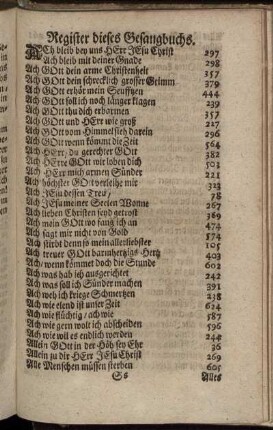 Register dieses Gesangbuchs.
ACh bleib bey uns HErr JEsu Christ 297
Ach bleib mit deiner Gnade 298
Ach GOtt dein arme Christenheit 357
Ach GOtt dein schrecklich grosser Grimm 379
Ach GOtt erhör mein Seufftzen 444
Ach GOtt soll ich noch länger klagen 239
Ach GOtt thu dich erbarmen 357
Ach GOtt und HErr wie groß 227
Ach GOtt vom Himmel sieh darein 296
Ach GOtt wenn kömmt die Zeit 564
Ach HErr, du gerechter GOtt 382
Ach HErre GOtt wir loben dich 501
Ach HErr mich armen Sünder 221
Ach höchster GOtt verleihe mir 323
Ach JEsu dessen Treu, 78
Ach JEsu meiner Seelen Wonne 267
Ach lieben Christen seyd getrost 368
Ach mein GOtt wo fang ich an 474
Ach sagt mir nicht von Gold 574
Ach stirbt denn so mein allerliebster 105
Ach treuer GOtt barmhertzigs Hertz 403
Ach wenn kömmet doch die Stunde 602
Ach was hab ich ausgerichtet 242
Ach was soll ich Sünder machen 391
Ach weh ich kriege Schmertzen 238
Ach wie elend ist unser Zeit 624
Ach wie flüchtig / ach wie 587
Ach wie gern wolt ich abscheiden 596
Ach wie will es endlich werden 244
Allein GOtt in der Höh sey Ehr 36
Allein zu dir HErr JEsu Christ 269
Alle Menschen müssen sterben 605
Ss Alles